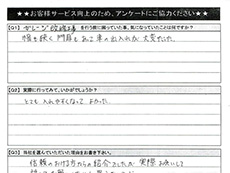 ★★お客様サービス向上のため、アンケートにご協力ください★★
【Q1】 を行う前に困っていた事、気になっていたことは何ですか?
幅も狭く門扉もあり車の出入れが大変だった。
【Q2】実際に行ってみて、いかがでしょうか?
とても入れやすくなってよかった。
【Q3】当社を選んでいただいた理由をお書き下さい。
信頼のおける方からの紹介でしたが実際お会いして